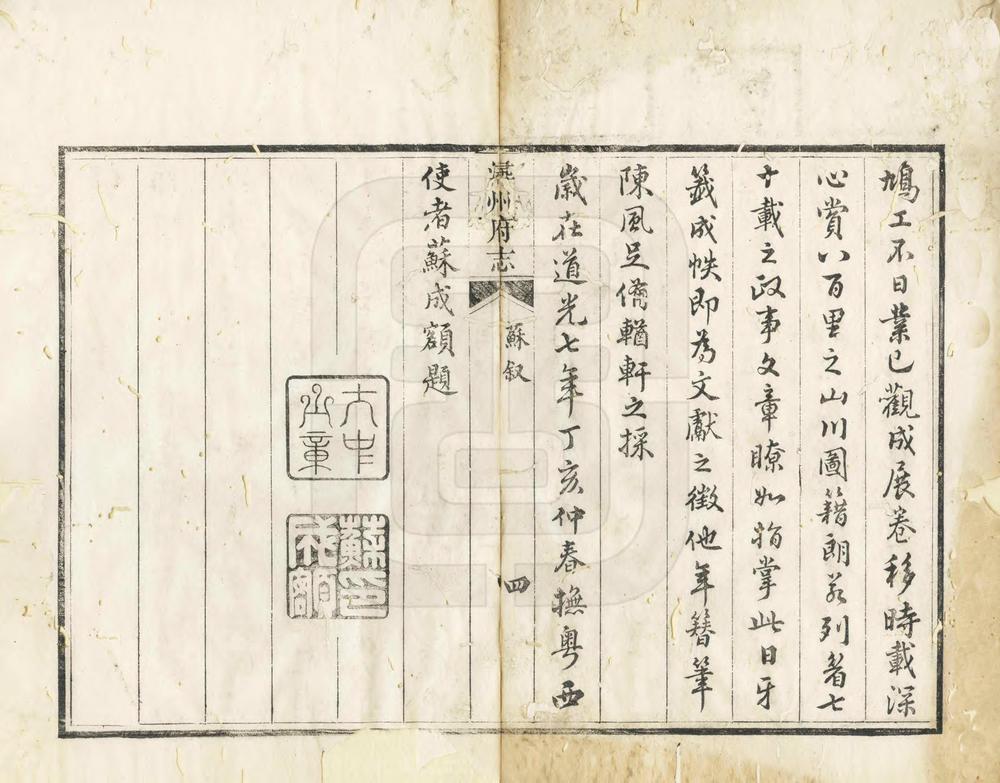 鳩工不日業已觀成展卷移時載深
心賞八百里之山川圖籍朗若列眉七
十載之政事文章瞭如指掌此日牙
籤成帙即為文獻之徵他年簪筆
陳風足備輶軒之採
歲在道光七年丁亥仲春撫粵西
潯州府志
蘇叙
四
使者蘇成額題
大中
丞章
蘇印
成額